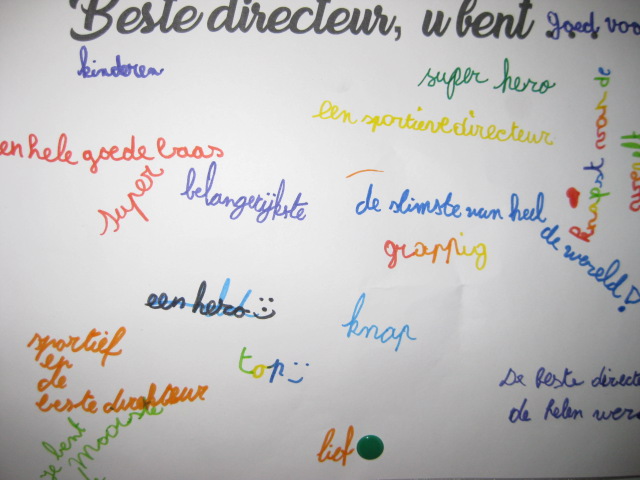 Beste directeur, u bent
goed voo
kinderen
super hero
een sportieve directeur
knapst van de
en hele goede baas
super
belangerijkste
de slimste van heel
de wereld!
grappig
een hero
knap
sportief
en
de
beste directeur
top
De beste directe
de helen were
lief
je bent
mooiste